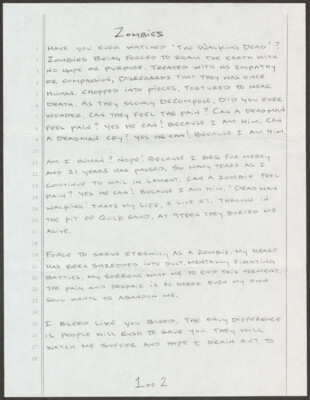 Zombies
Have you ever watched "The Walking Dead"?
Zombies being forced to roam the earth with
no hope or purpose. Treated with no empathy
or compassion, disregards that they was once
human. Chopped into pieces, tortured to near
death. As they slowly decompose, did you ever
wonder, can they feel the pain? Can a deadman
feel pain? Yes he can! Because I am him. Can
a deadman cry? Yes he can! Because I am him
Am I human? Nope! Because I beg for mercy
and 21 years has passed, so many tears as I
continue to wail in lament. Can a zombie feel
pain? Yes he can! Because I am him, "Dead man
walking" thats my life, I live it. Thrown in
the pit of quick sand, at 19teen they buried me
alive.
Force to serve eternity as a zombie. My heart
has been shredded into dust. Mentally fighting
battles, my sorrows want me to end this torment.
The pain and despair is so harsh even my own
soul wants to abandon me.
I bleed like you bleed, the only difference
is people will rush to save you. They will
watch me suffer and hope I drain out to
1 of 2